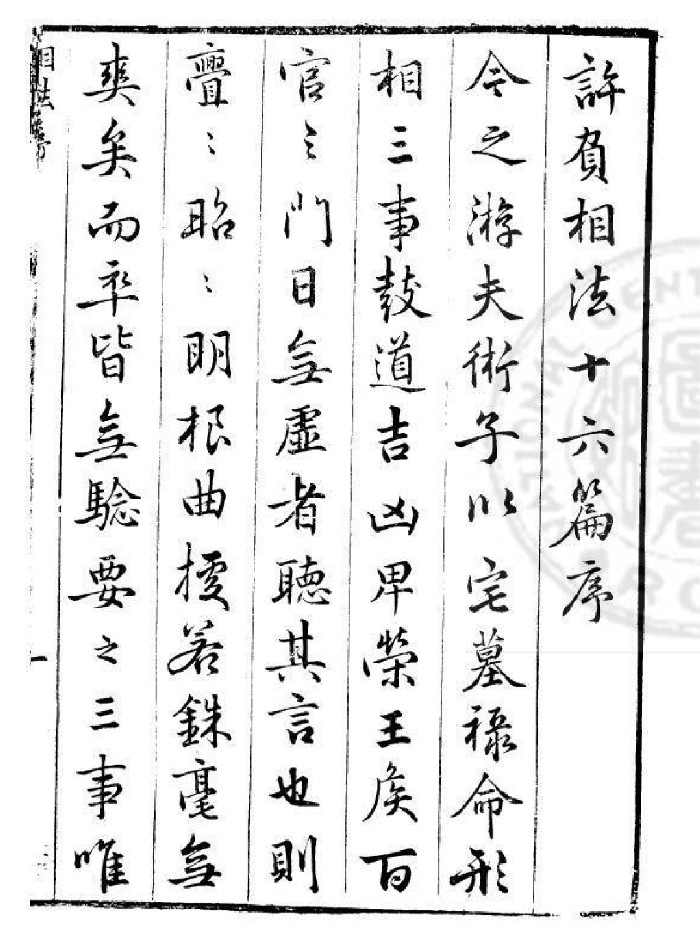 許負相法十六篇序
今之游夫術子以宅墓祿命形
相三事鼓道吉凶卑榮王侯百
官之門日無虛者聽其言也則
亹〻昭〻明根曲㯋若銖毫無
爽矣而卒皆無驗要之三事唯
相法序
一